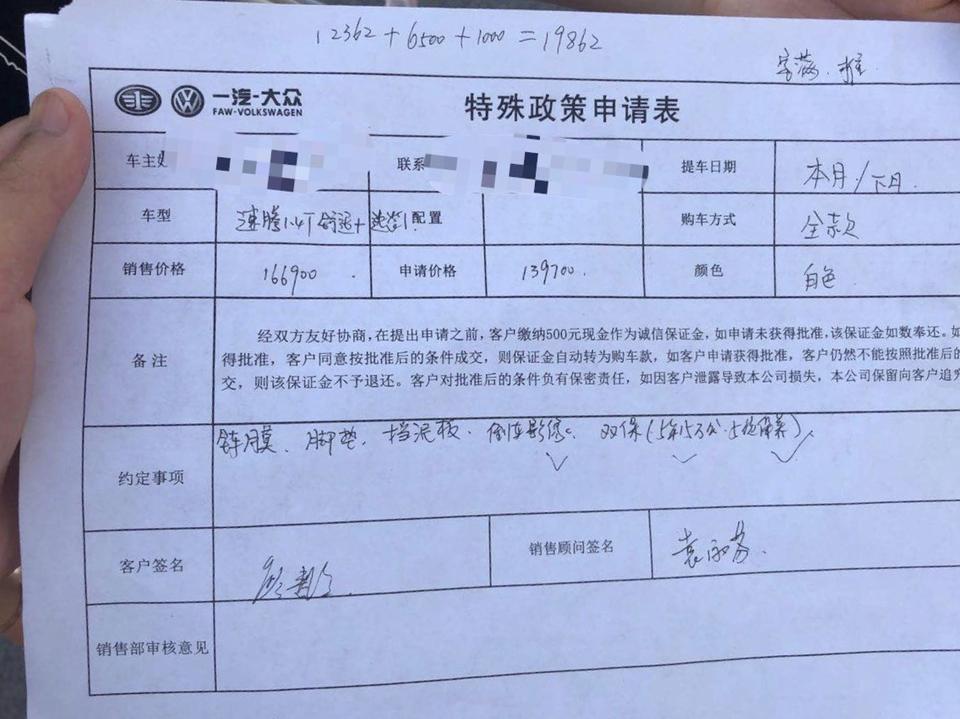 12362 + 6500 + 1000 = 19862
一汽-大众
FAW-VOLKSWAGEN
特殊政策申请表
车主 联系 提车日期 本月/下月
车型 速腾1.4T舒适+ 配置 购车方式 全款
销售价格 166900 申请价格 139700 颜色 白色
经双方友好协商,在提出申请之前,客户缴纳500元现金作为诚信保证金,如申请未获得批准,该保证金如数奉还。如
备注 得批准,客户同意按批准后的条件成交,则保证金自动转为购车款,如客户申请获得批准,客户仍然不能按照批准后的
交,则该保证金不予退还。客户对批准后的条件负有保密责任,如因客户泄露导致本公司损失,本公司保留向客户追究
膜、脚垫、挡泥板、倒车影像、双保(5年15万公.5次保养)
约定事项
客户签名 销售顾问签名
销售部审核意见